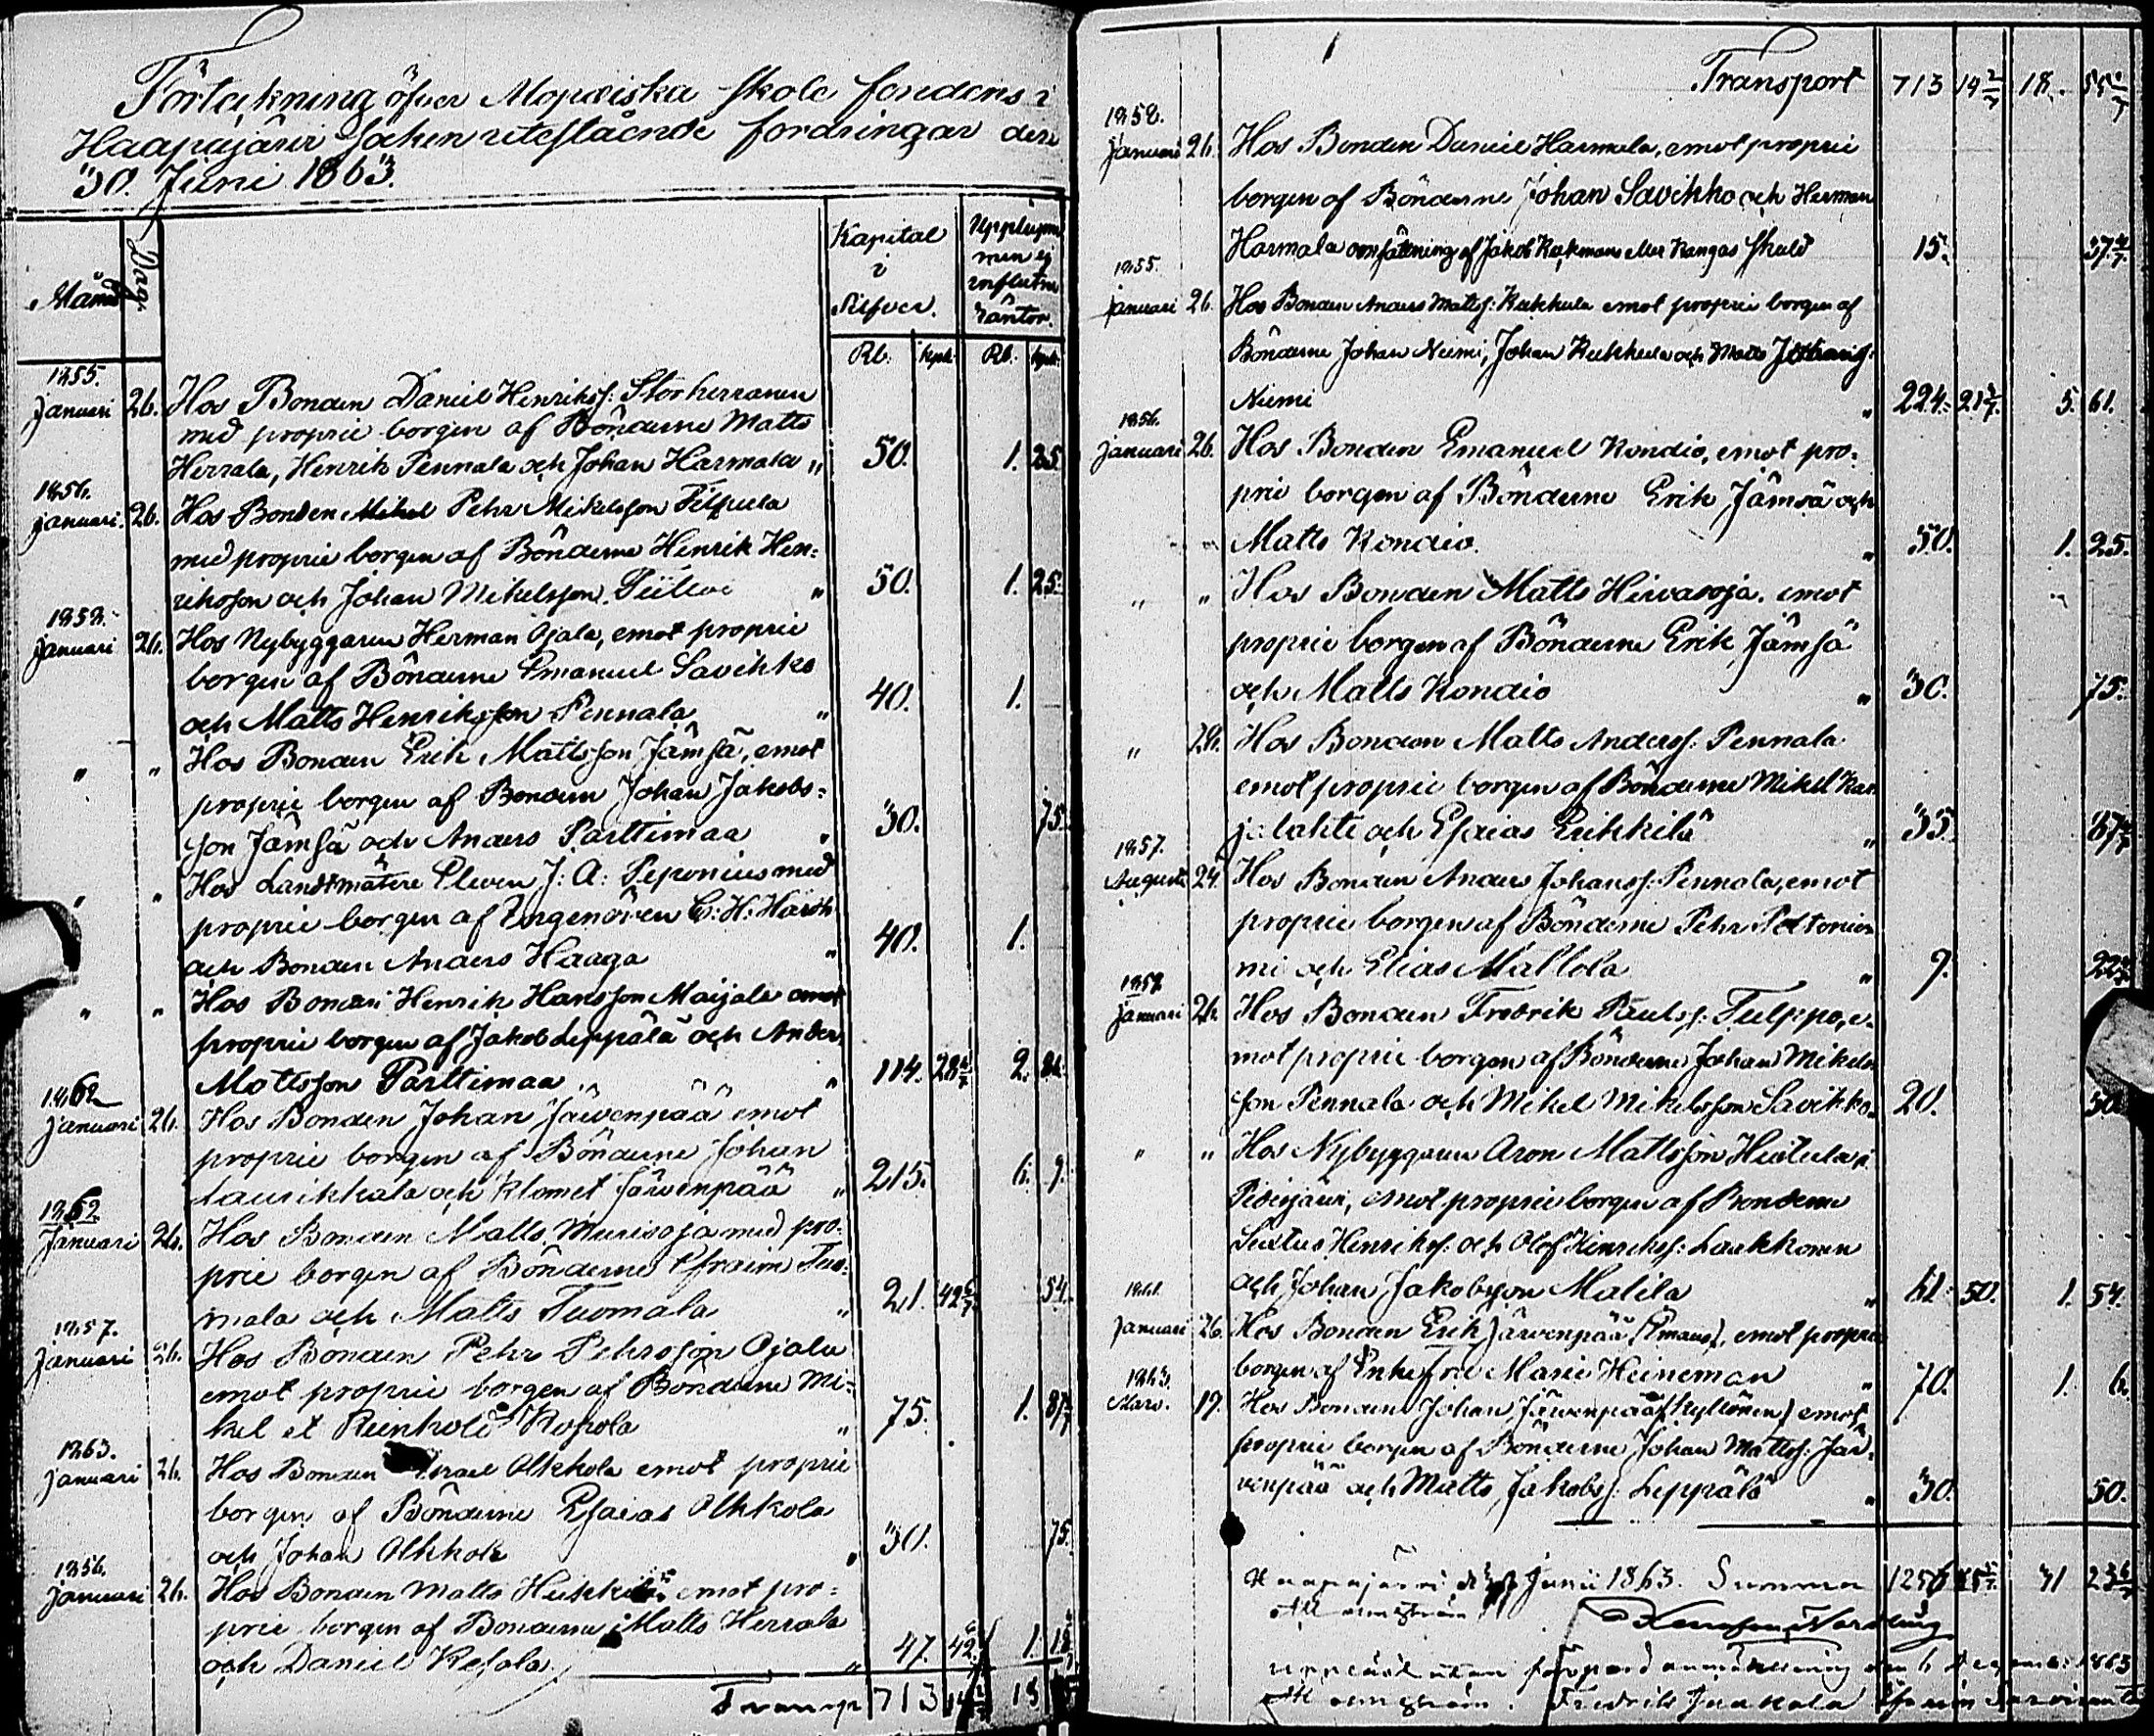 Förteckning öfver Mopæiska Skole fondens i
Haapajärvi Socken utestående fordringar den
30. Juni 1863.
Månad Dag Kapital i Silfver. Upplupne men ej influtne räntor.
Rb. kpk. Rb. kpk.
1855.
Januari 26. Hos Bonden Daniel Henrikss: Storherranen
med proprie borgen af Bönderne Matts
Herrala, Henrik Pennala och Johan Harmala " 50. 1. 25.
1856.
Januari. 26. Hos Bonden Pehr Mikelsson
med proprie borgen af Bönderne Henrik Hen-
riksson och Johan Mikelsson " 50. 1. 25.
1858.
Januari 26. Hos Nybyggaren Herman Ojala, emot proprie
borgen af Bönderne Emanuel Savikko
och Matts Henriksson Pennala " 40. 1.
" " Hos Bonden Erik Mattsson Jämsä, emot
proprie borgen af Bonden Johan Jakobs-
son Jämsä och Anders Parttimaa " 30. 75.
" " Hos Landtmätere Eleven J: A: Peponius med
proprie borgen af Ingeniören C: H:
och Bonden Anders Haaga " 40. 1.
" " Hos Bonden Henrik Hansson Maijala emot
proprie borgen af Jakob Leppälä och Anders
Mattsson Parttimaa " 114. 28 4/7 2.
1862
Januari 26. Hos Bonden Johan Järvenpää emot
proprie borgen af Bönderne Johan
Laurikkala och Klomet Järvenpää " 215. 6. 9.
1862.
Januari 26. Hos Bonden Matts Murisoja med pro-
prie borgen af Bönderne Efraim Tuo-
mala och Matts Tuomala " 21. 42 6/7 54.
1857.
Januari 26. Hos Bonden Pehr Pehrsson Ojala
emot proprie borgen af Bönderne Mi-
kel et Reinhold Kopola " 75. 1. 87
1863.
Januari 26. Hos Bonden Israel Olkkola emot proprie
borgen af Bönderne Esaias Olkkola
och Johan Olkkola " 30. 75.
1856.
Januari 26. Hos Bonden Matts emot pro-
prie borgen af Bönderne Matts Herrala
och Daniel Kesola. " 47. 42 6/7 1.
Transp 713 14 2/7 18
Transport 713 14 2/7 18. 55
1858.
Januari 26. Hos Bonden Daniel Harmala, emot proprie
borgen af Bönderne Johan Savikko och Herman
Harmala omsättning af Jakob eller Kangas skuld 15. 37
1855.
Januari 26. Hos Bonden Anders Mattss: Kukkula emot proprie borgen af
Bönderne Johan Niemi, Johan Kukkula och Matts
Niemi " 224. 21 3/7. 5. 61.
1856.
Januari 26. Hos Bonden Emanuel Kondio, emot pro-
prie borgen af Bönderne Erik Jämsä och
Matts Kondio. " 50. 1. 25.
" " Hos Bonden Matts Hirvasoja. emot
proprie borgen af Bönderne Erik Jämsä
och Matts Kondio " 30. 75.
" 28. Hos Bonden Matts Anderss: Pennala
emot proprie borgen af Bönderne Mikel Kar-
jalahti och Esaias Erikkilä " 35. 87
1857.
Augusti 24. Hos Bonden Anders Johanss: Pennala, emot
proprie borgen af Bönderne Pehr Peltonie-
mi och Elias Mattola " 9. 22
1858
Januari 26. Hos Bonden Fredrik Paulss: Tulppo, e-
mot proprie borgen af Bönderne Johan Mikels-
son Pennala och Mikel Mikelsson Savikko " 20. 50
" " Hos Nybyggaren Aron Mattsson Hietala i
Pidisjärvi, emot proprie borgen af Bonderne
Sixtus Henrikss: och Olof Hinrikss: Laukkonen
och Johan Jakobsson Matila " 61. 50. 1. 54.
1861.
Januari 26. Hos Bonden Erik Järvenpää (Emaus), emot proprie
borgen af Enkefru Marie Heineman " 70. 1. 6.
1863.
Mars. 19. Hos Bonden Johan Järvenpää (Kyllönen) emot
proprie borgen af Bönderne Johan Mattss: Jär-
venpää och Matts Jakobss: Leppälä " 30. 50.
Haapajärvi Junii 1863. Summa 1256 31 23
Nordlung
uppläst utan anmärkning den 6 1863
Fredrik Jaakola